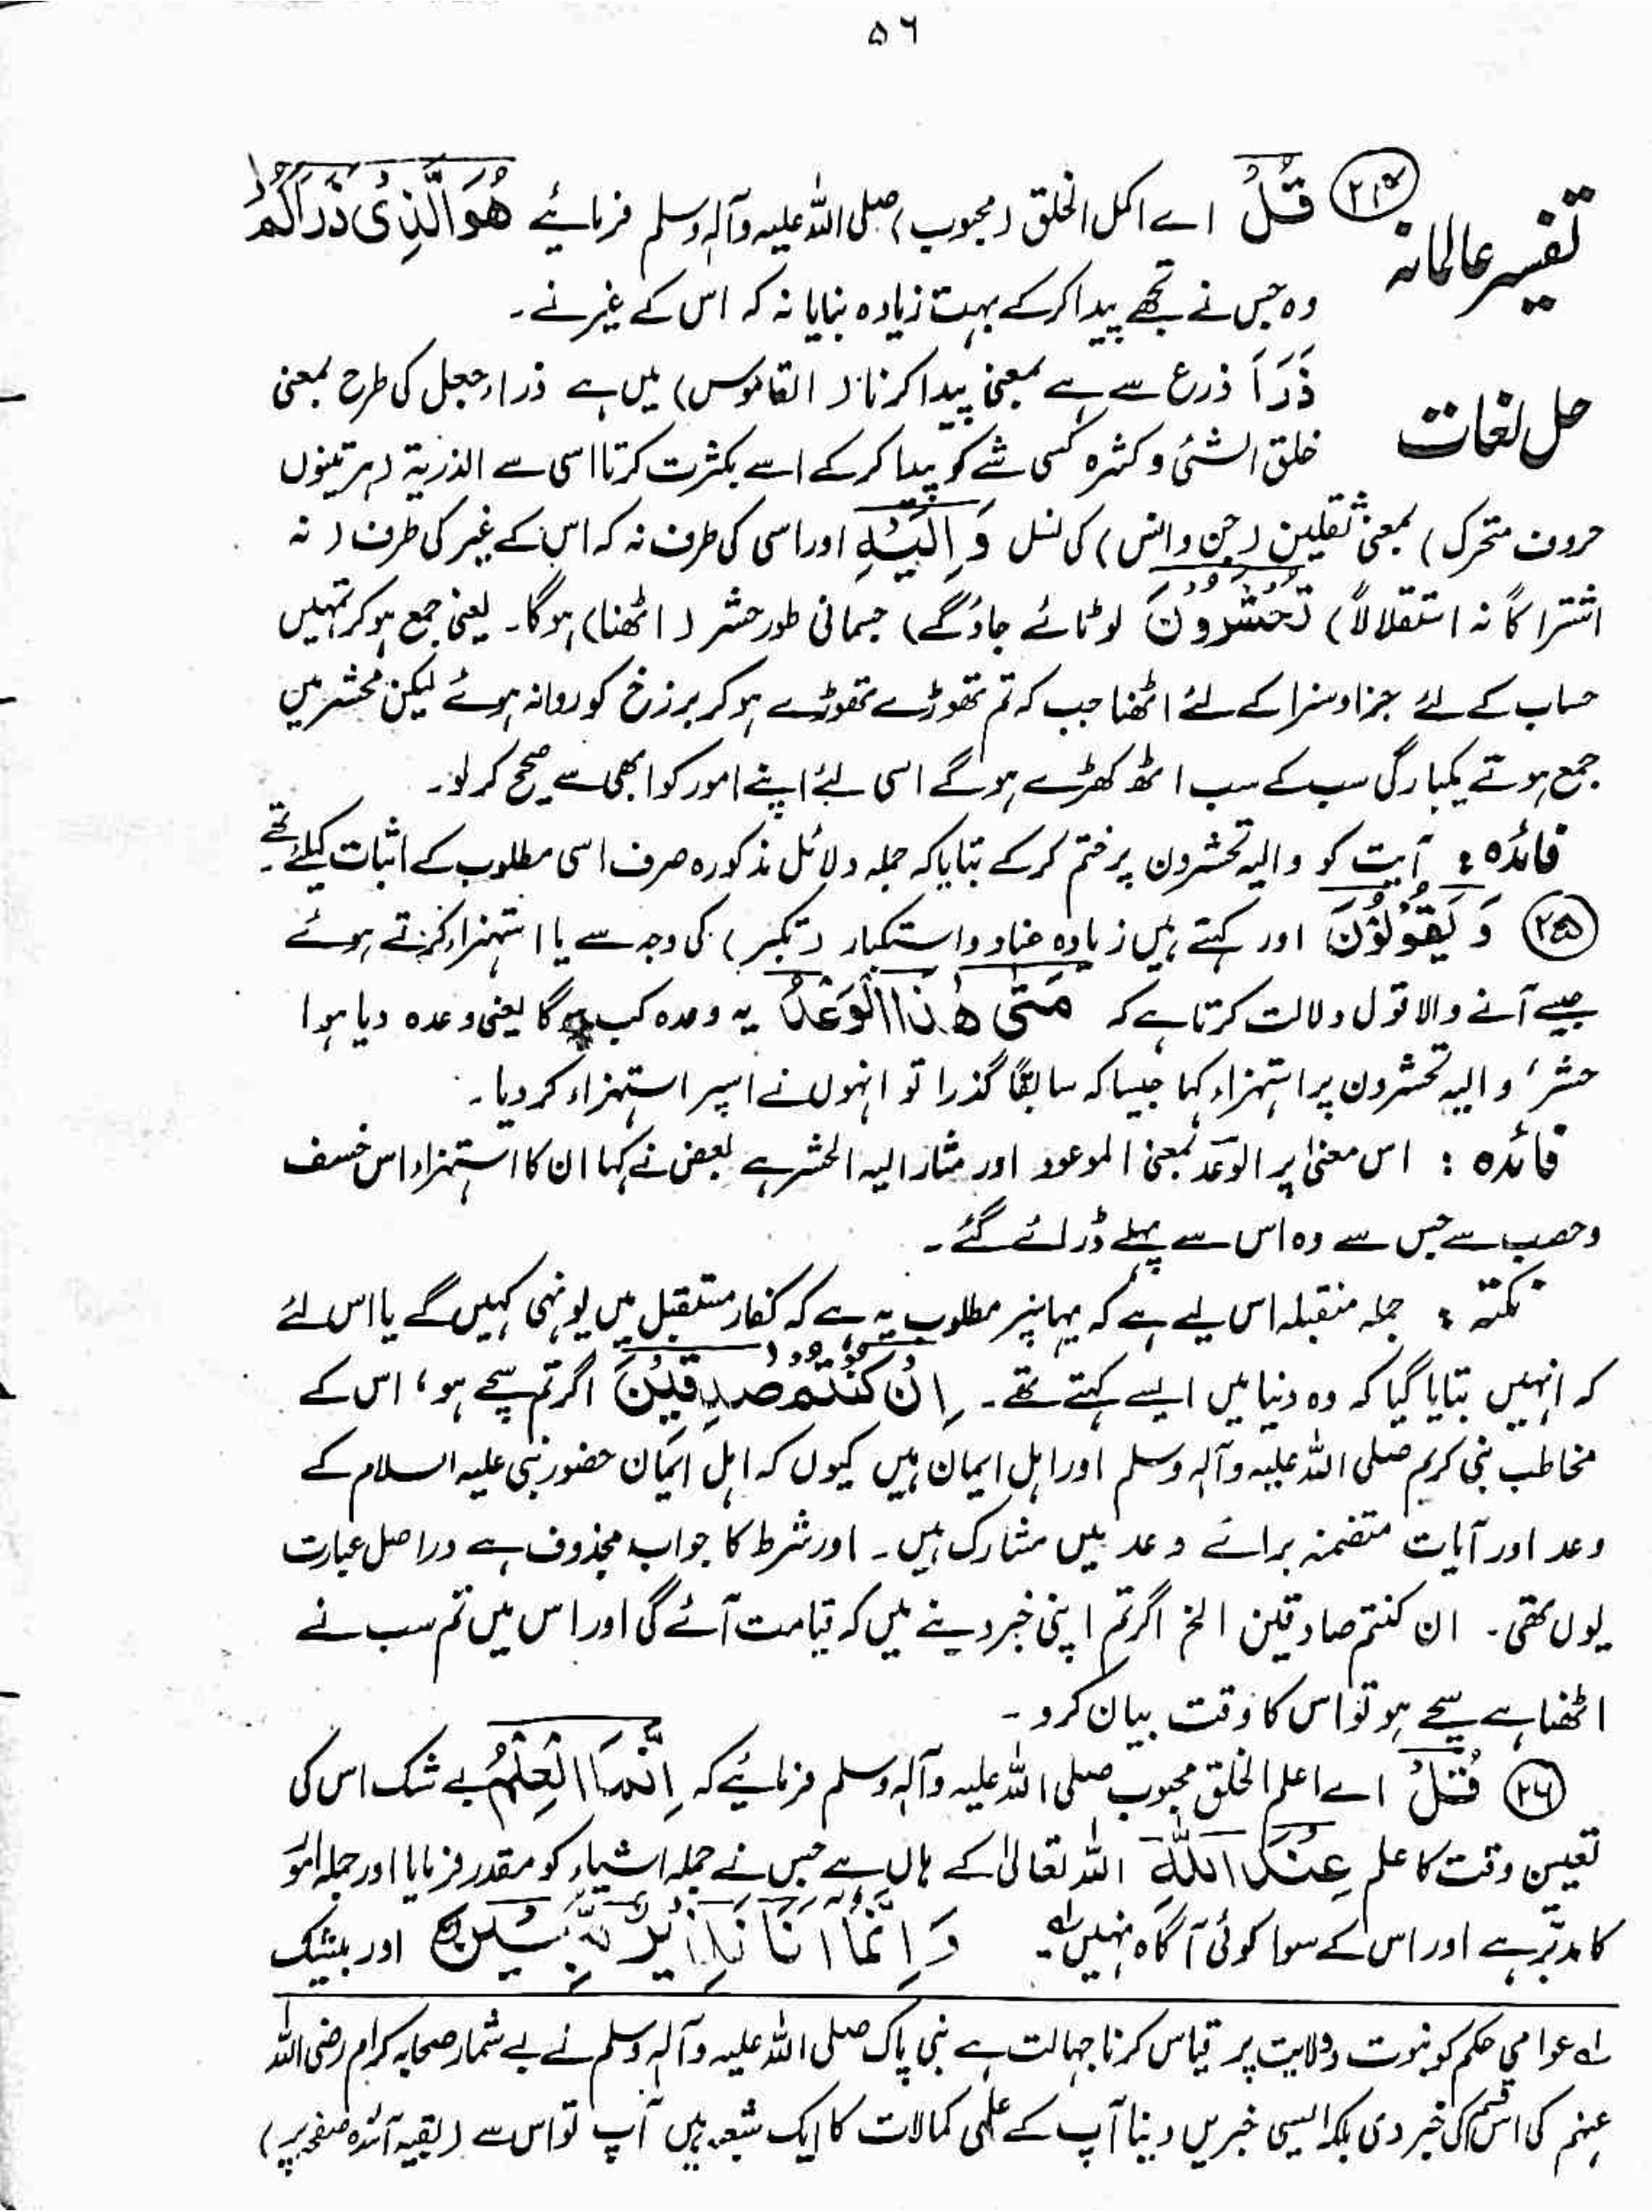 ۵۶
تفسیر عالمانہ
۲۴ قُلْ اے اکمل الخلق (محبوب) صلی اللہ علیہ وآلہٖ وسلم فرمائیے هُوَ الَّذِیْ ذَرَاَكُمْ
وہ جس نے تجھے پیدا کرکے بہت زیادہ بنایا نہ کہ اس کے غیر نے۔
حل لغات
ذَرَاَ ذرع سے ہے بمعنی پیدا کرنا (القاموس) میں ہے ذراء جعل کی طرح بمعنی
خلق الشئی وکثرہ کسی شے کو پیدا کرکے اسے بکثرت کرتا اسی سے الذریۃ (ہر تینوں
حروف متحرک) بمعنی ثقلین (جن وانس) کی نسل وَ اِلَیْهِ اور اسی کی طرف نہ کہ اس کے غیر کی طرف (نہ
اشتراکًا نہ استقلالاً) تُحْشَرُوْنَ لوٹائے جاؤگے) جسمانی طور حشر (اٹھنا) ہوگا۔ یعنی جمع ہوکر تمہیں
حساب کے لئے جزا وسزا کے لئے اٹھنا جب کہ تم تھوڑے تھوڑے ہوکر برزخ کو روانہ ہوئے لیکن محشر میں
جمع ہوتے یکبارگی سب کے سب اٹھ کھڑے ہوگے اسی لئے اپنے امور کو ابھی سے صحیح کرلو۔
فائدہ : آیت کو والیہ تحشرون پر ختم کرکے بتایا کہ جملہ دلائل مذکورہ صرف اسی مطلوب کے اثبات کیلئے تھے۔
۲۵ وَ یَقُوْلُوْنَ اور کہتے ہیں زیادہ عناد واستکبار (تکبر) کی وجہ سے یا استہزاء کرتے ہوئے
جیسے آنے والا قول دلالت کرتا ہے کہ مَتٰی هٰذَا الْوَعْدُ یہ وعدہ کب ہوگا یعنی وعدہ دیا ہوا
حشر، والیہ تحشرون پر استہزاء کہا جیسا کہ سابقًا گذرا تو انہوں نے اسپر استہزاء کردیا۔
فائدہ : اس معنیٰ پر الوعد بمعنی الموعود اور مشار الیہ الحشر ہے بعض نے کہا ان کا استہزاء اس خسف
وحصب سے جس سے وہ اس سے پہلے ڈرائے گئے۔
نکتہ : جملہ منقبلہ اس لیے ہے کہ یہاںپر مطلوب یہ ہے کہ کفار مستقبل میں یونہی کہیں گے یا اس لئے
کہ انہیں بتایا گیا کہ وہ دنیا میں ایسے کہتے تھے۔ اِنْ كُنْتُمْ صٰدِقِیْنَ اگر تم سچے ہو، اس کے
مخاطب نبی کریم صلی اللہ علیہ وآلہٖ وسلم اور اہل ایمان ہیں کیوں کہ اہل ایمان حضور نبی علیہ السلام کے
وعد اور آیات متضمنہ برائے وعد میں مشارک ہیں۔ اور شرط کا جواب محذوف ہے دراصل عبارت
یوں تھی۔ ان کنتم صادقین الخ اگر تم اپنی خبر دینے میں کہ قیامت آئے گی اور اس میں تم سب نے
اٹھنا ہے سچے ہو تو اس کا وقت بیان کرو۔
۲۶ قُلْ اے اعلم الخلق محبوب صلی اللہ علیہ وآلہٖ وسلم فرمائیے کہ اِنَّمَا الْعِلْمُ بے شک اس کی
تعیین وقت کا علم عِنْدَ اللّٰهِ اللہ تعالیٰ کے ہاں ہے جس نے جملہ اشیاء کو مقدر فرمایا اور جملہ امور
کا مدبّر ہے اور اس کے سوا کوئی آگاہ نہیں لہ وَ اِنَّمَا اَنَا نَذِیْرٌ مُّبِیْنٌ اور بیشک
لہ عوامی حکم کو نبوت وولایت پر قیاس کرنا جہالت ہے نبی پاک صلی اللہ علیہ وآلہٖ وسلم نے بے شمار صحابہ کرام رضی اللہ
عنہم کی اس قسم کی خبر دی بلکہ ایسی خبریں دینا آپ کے علمی کمالات کا ایک شعبہ ہیں آپ تو اس سے (بقیہ آئندہ صفحہ پر)